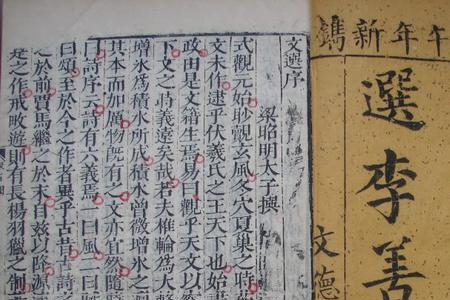 午年新鐫
選李善
文德
文選序
梁昭明太子撰
式觀元始眇覿玄風冬穴夏巢之時
文未作逮乎伏羲氏之王天下也始
政由是文籍生焉易曰觀乎天文以
下文之時義遠矣哉若夫椎輪為大
增氷為積水所成積水曾微增氷之
其本而加厲物既有之文亦宜然隨
曰詩序云詩有六義焉一曰風二曰
曰頌至於今之作者異乎古昔古詩
之於前賈馬繼之於末自茲以降源
是之作戒畋遊則有長楊羽獵之制